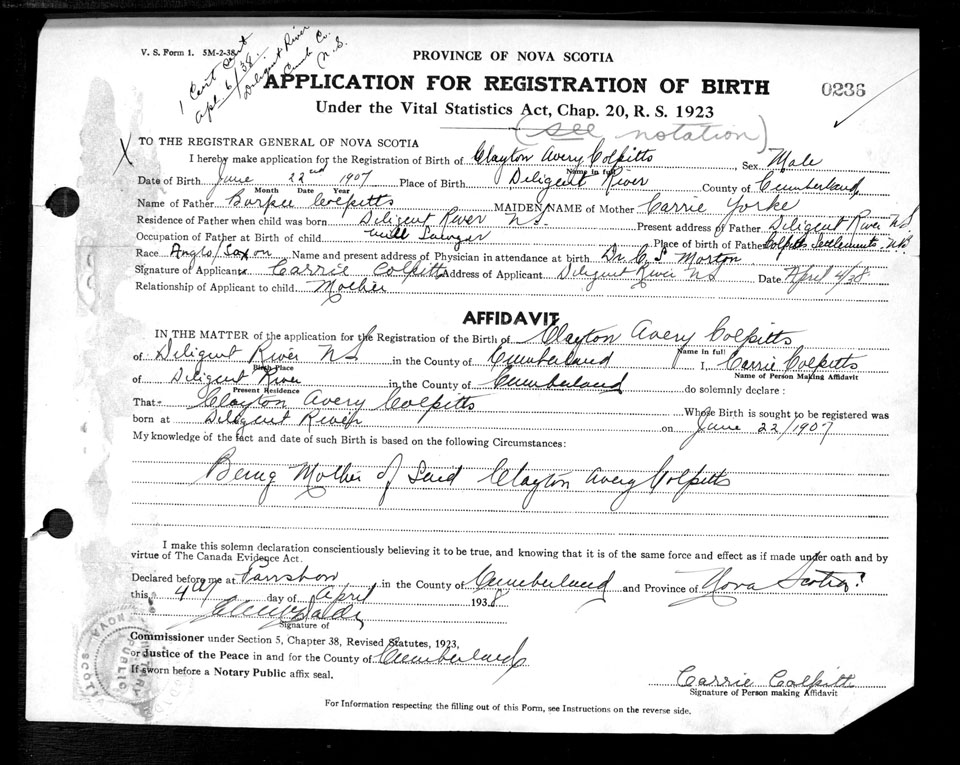 V. S. Form 1. 5M-2-38
1 Cert sent
Apl 6/38.
Diligent River
Cumb Co.
N.S.
PROVINCE OF NOVA SCOTIA
APPLICATION FOR REGISTRATION OF BIRTH
0236
Under the Vital Statistics Act, Chap. 20, R. S. 1923
(see notation)
X TO THE REGISTRAR GENERAL OF NOVA SCOTIA
I hereby make application for the Registration of Birth of Clayton Avery Colpitts Sex Male
Name in full
Date of Birth June 22nd 1907 Place of Birth Diligent River County of Cumberland
Month Date Year
Name of Father Burpee Colpitts MAIDEN NAME of Mother Carrie Yorke
Residence of Father when child was born Diligent River NS. Present address of Father Diligent River NS
Occupation of Father at Birth of child Mill Sawyer Place of birth of Father Colpitts Settlements, N.B.
Race Anglo/Saxon Name and present address of Physician in attendance at birth Dr. C. S Morton
Signature of Applicant Carrie Colpitts Address of Applicant Diligent River NS Date April 4/38.
Relationship of Applicant to child Mother
AFFIDAVIT
IN THE MATTER of the application for the Registration of the Birth of Clayton Avery Colpitts
Name in full
of Diligent River NS in the County of Cumberland I, Carrie Colpitts
Birth Place Name of Person Making Affidavit
of Diligent River in the County of Cumberland do solemnly declare :
Present Residence
That Clayton Avery Colpitts Whose Birth is sought to be registered was
born at Diligent River on June 22/1907
My knowledge of the fact and date of such Birth is based on the following Circumstances:
Being Mother of Said Clayton Avery Colpitts
I make this solemn declaration conscientiously believing it to be true, and knowing that it is of the same force and effect as if made under oath and by
virtue of The Canada Evidence Act.
Declared before me at Parrsboro in the County of Cumberland and Province of Nova Scotia
this 4th day of April 1938
Signature of
Commissioner under Section 5, Chapter 38, Revised Statutes, 1923,
or Justice of the Peace in and for the County of Cumberland
If sworn before a Notary Public affix seal.
Carrie Colpitts
Signature of Person making Affidavit
For Information respecting the filling out of this Form, see Instructions on the reverse side.